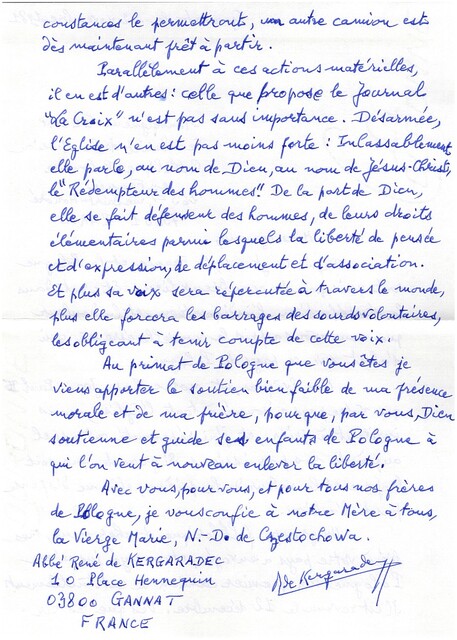 constances le permettront, un autre camion est
dès maintenant prêt à partir.
Parallèlement à ces actions matérielles,
il en est d'autres : celle que propose le Journal
"La Croix" n'est pas sans importance. Désarmée,
l'Eglise n'en est pas moins forte : Inlassablement
elle parle, au nom de Dieu, au nom de Jésus-Christ,
le "Rédempteur des hommes". De la part de Dieu,
elle se fait défenseur des hommes, de leurs droits
élémentaires parmi lesquels la liberté de pensée
et d'expression, de déplacement et d'association.
Et plus sa voix sera répercutée à travers le monde,
plus elle forcera les barrages des sourds volontaires,
les obligeant à tenir compte de cette voix.
Au primat de Pologne que vous êtes je
viens apporter le soutien bien faible de ma présence
morale et de ma prière, pour que, par vous, Dieu
soutienne et guide ses enfants de Pologne à
qui l'on veut à nouveau enlever la liberté.
Avec vous, pour vous, et pour tous nos frères
de Pologne, je vous confie à notre Mère à tous,
la Vierge Marie, N.-D. de Częstochowa.
Abbé René de KERGARADEC
10 Place Hennequin
03800 GANNAT
FRANCE
de Kergaradec